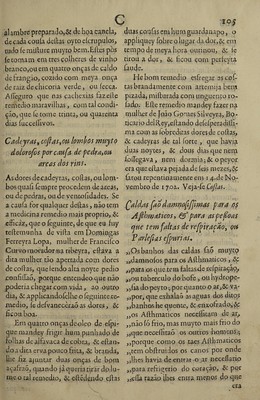 C 105
al ambre preparado, & de boa canela,
de cada cousa destas oyto escrupulos,
tudo se misture muyto bem. Estes pós
se tomam em tres colheres de vinho
branco, ou em quatro onças de caldo
de frangão, cozido com meya onça
de raiz de chicoria verde, ou secca.
Asseguro que nas cachexias fazeste
remedio maravilhas, com tal condi-
ção, que se tome trinta, ou quarenta
dias successivos.
Cadeyras, costas, ou lombos muyto
dolorosos por causa de pedra, ou
areas dos rins.
As dores de cadeyras, costas, ou lom-
bos quasi sempre procedem de areas,
ou de pedras, ou de ventosidades. Se
a causa for qualquer destas, não tem
a medicina remedio mais proprio, &
efficaz, que o seguinte, de que eu fuy
testemunha de vista em Domingas
Ferreyra Lopa, mulher de Francisco
Corvo morador na ribeyra, estava a
esta mulher tão apertada com dores
de costas, que lendo alta noyte pedio
confissão, porque entendeo que não
poderia chegar com vida, ao outro
dia, & applicandoselhe o seguinte re-
medio, se desvanecerão as dores, &
ficou boa.
Em quatro onças de oleo de espi-
que mandey frigir hum punhado de
folhas de alfavaca de cobra, & estan-
do a dita erva pouco frita, & branda,
lhe fiz ajuntar duas onças de bom
açafrão, quando já queria tirar do lu-
me o tal remedio, & estedendo estas
duas cousas em hum guardanapo, o
appliquey sobre o lugar da dor, & em
tempo de meya hora ourinou, & se
tirou a dor, & ficou com perfeyta
saude.
He bom remedio esfregar as cos-
tas brandamente com huma boa
pirada, misturada com unguento ro-
sado. Este remedio mandey fazer na
mulher de João Gomes Silveyra, Bo-
ticario del Rey, estando desesperadissi-
ma com as sobreditas dores de costas,
& cadeyras de tal sorte, que havia
duas noytes, & dous dias que nem
sossegava, nem dormia; & o peyor
era que estava pejada de seis mezes, &
sarou repentinamente em 4. de No-
vembro de 1702. Veja-se Costas.
Caldas saõ damnosissimas para os
Asthmaticos, & para as pessoas
que tem faltas de respiração, ou
Parlesias espurias.
Os banhos das caldas são muyto
damnosos para os Asthmaticos, &
para os que tem faltas de respiração,
ou tuberculo do bofe, ou hydrope-
sia do peyto; por quanto o ar, & va-
por, que exhalão as agoas dos ditos
banhos he quente, & enxofrado; &
os Asthmaticos necessitam de ar,
não só frio, mas muyto mais frio do
que necessitão os outros homens,
porque como os taes Asthmaticos
tem obstruidos os canos por onde
lhes havia de entrar o ar necessario
para refrigerio do coração, & por
essa razão lhes entra menos do que
era